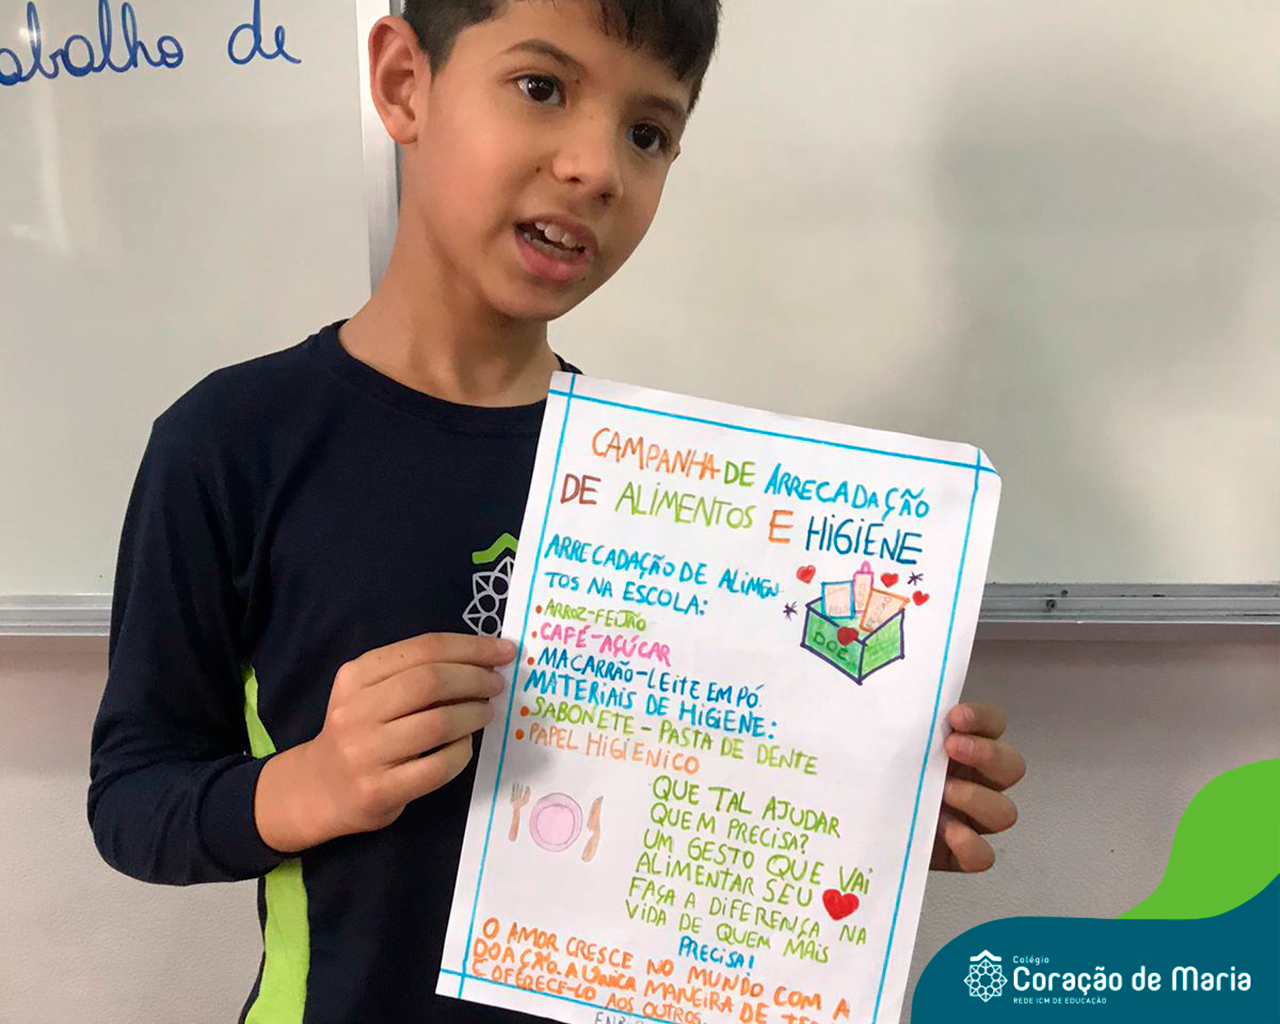 abalho de
CAMPANHA DE ARRECADAÇÃO
DE ALIMENTOS E HIGIENE
ARRECADAÇÃO DE ALIMEN
TOS NA ESCOLA:
• ARROZ-FEIJÃO
• CAFÉ-AÇÚCAR
• MACARRÃO-LEITE EM PÓ.
MATERIAIS DE HIGIENE:
• SABONETE - PASTA DE DENTE
• PAPEL HIGIENICO
DOE
QUE TAL AJUDAR
QUEM PRECISA?
UM GESTO QUE VAI
ALIMENTAR SEU
FAÇA A DIFERENÇA NA
VIDA DE QUEM MAIS
PRECISA!
O AMOR CRESCE NO MUNDO COM A
DOAÇÃO. A ÚNICA MANEIRA DE
É OFERECE-LO AOS OUTROS.
Colégio
Coração de Maria
REDE ICM DE EDUCAÇÃO